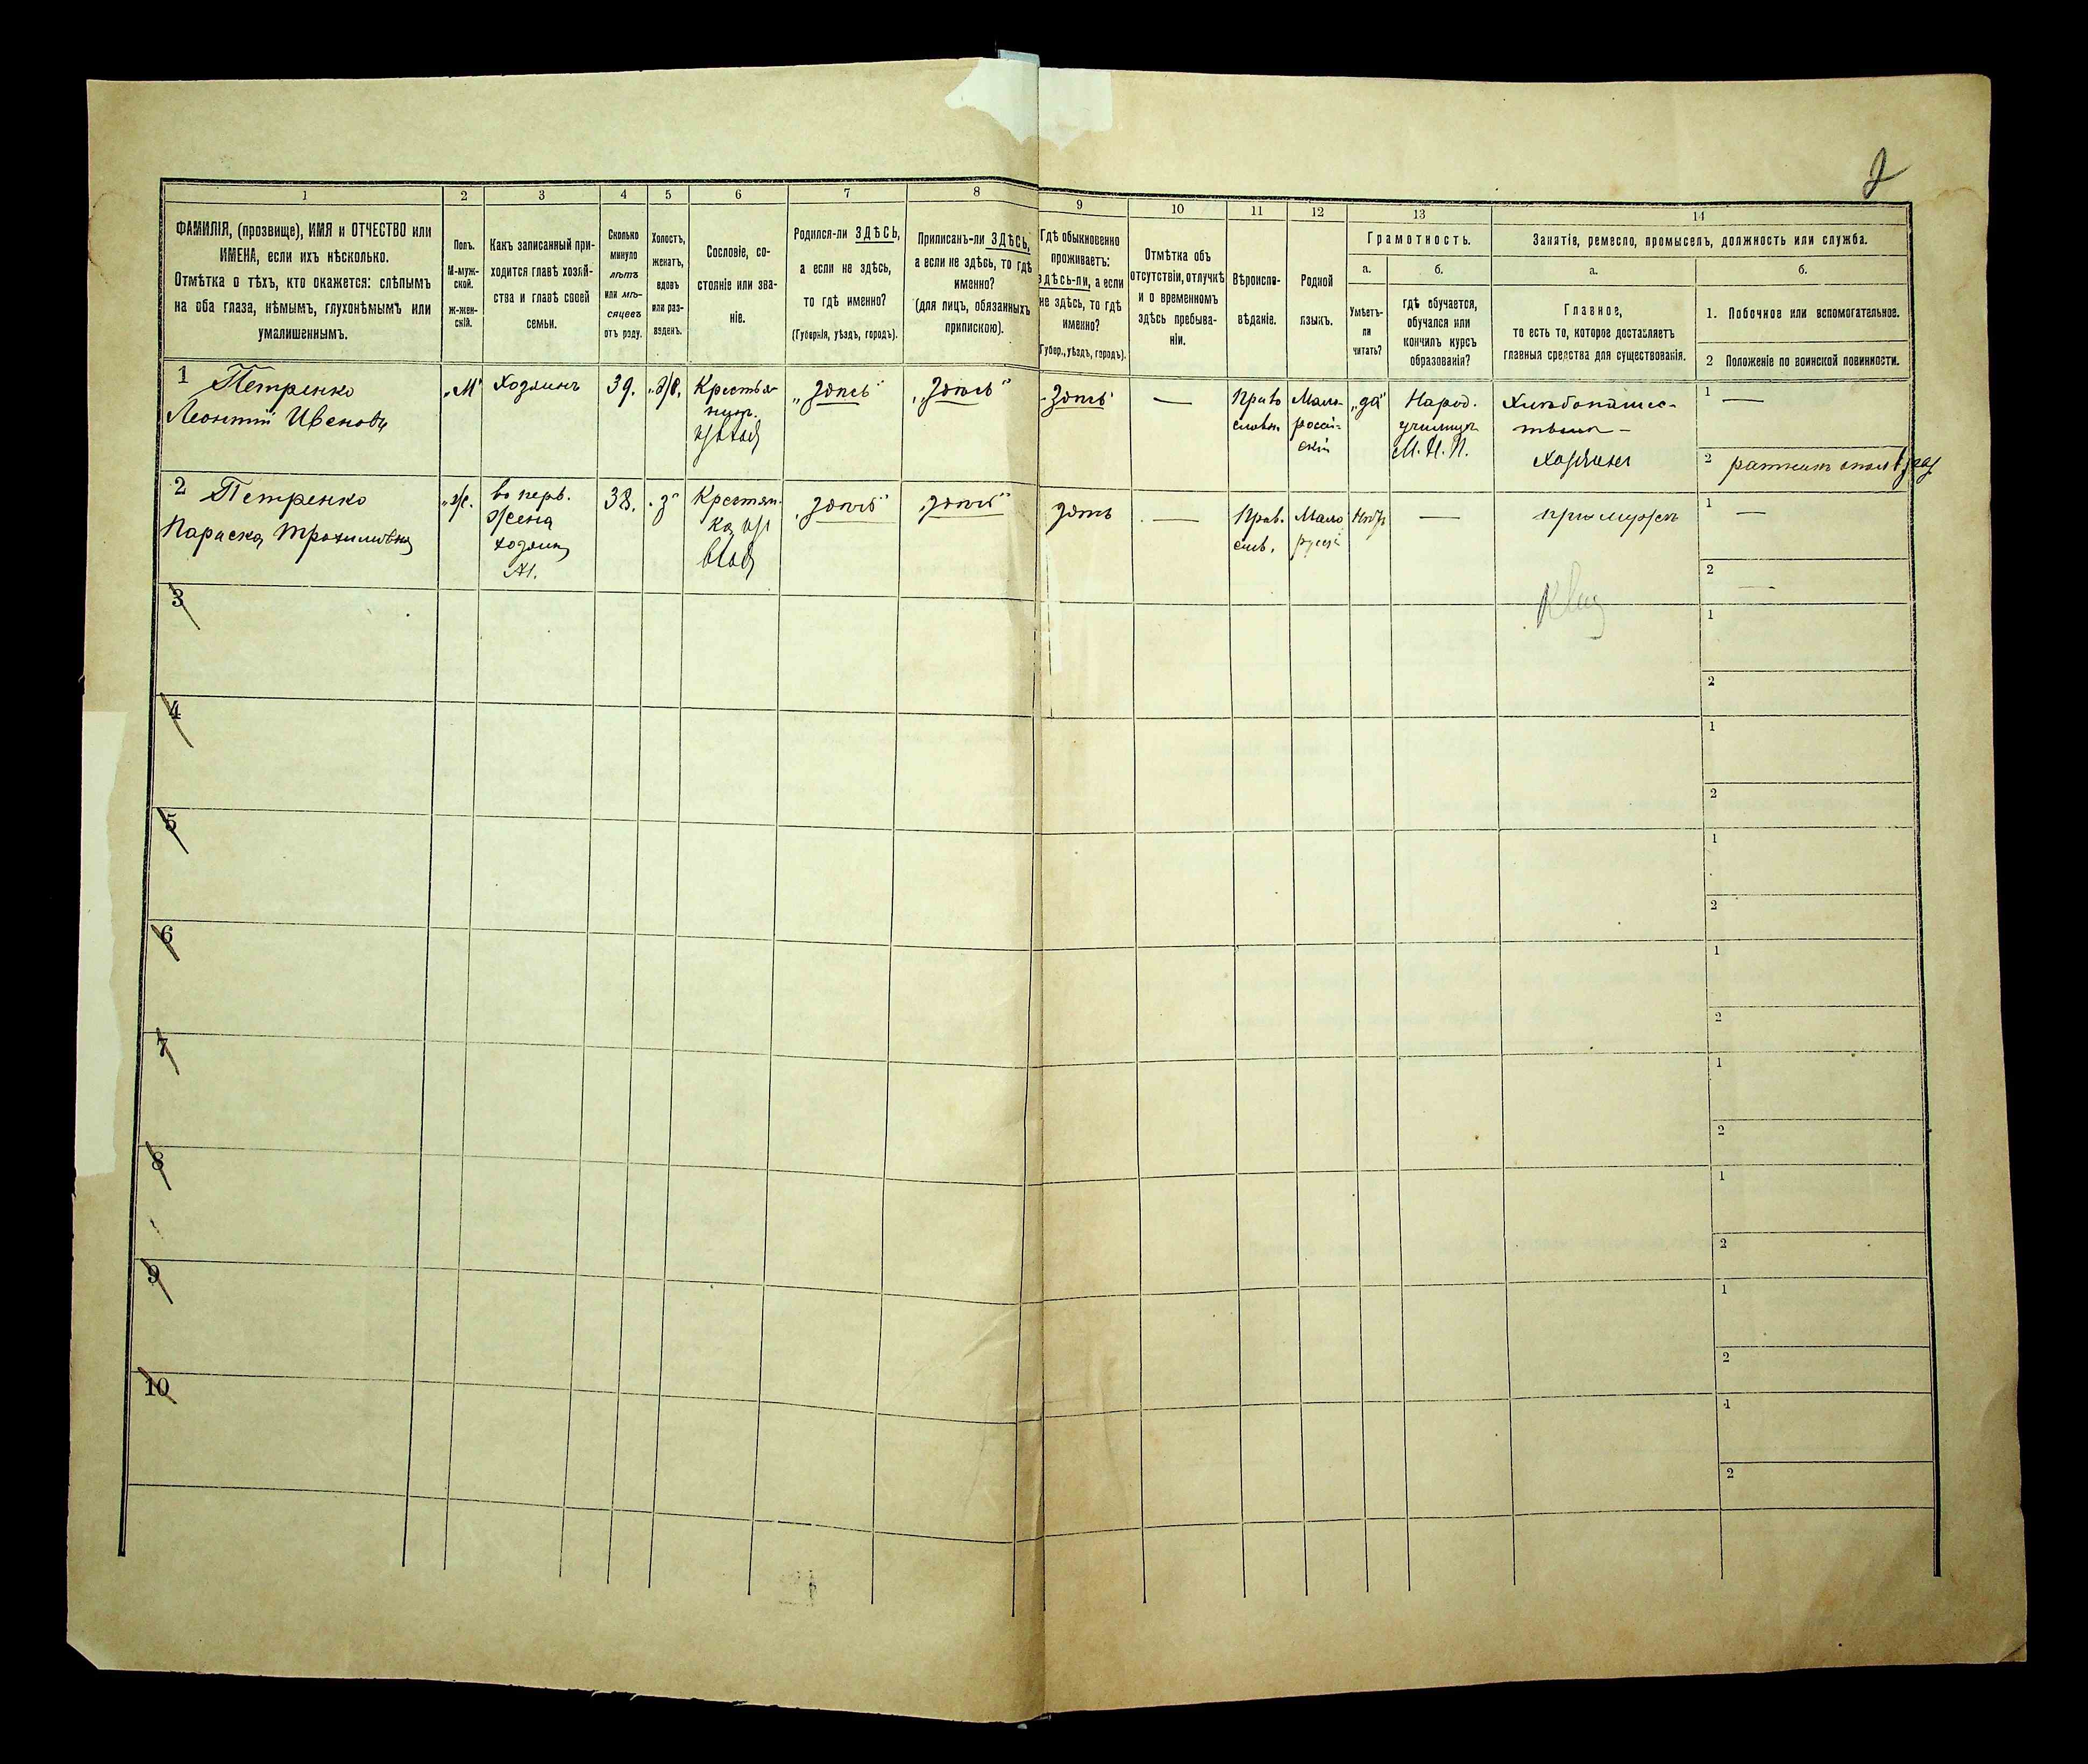 2
1 2 3 4 5 6 7 8 9 10 11 12 13 14
ФАМИЛІЯ, (прозвище), ИМЯ и ОТЧЕСТВО или
ИМЕНА, если ихъ нѣсколько.
Отмѣтка о тѣхъ, кто окажется: слѣпымъ
на оба глаза, нѣмымъ, глухонѣмымъ или
умалишеннымъ.
Полъ.
М-муж-
ской.
ж-жен-
скій.
Какъ записанный при-
ходится главѣ хозяй-
ства и главѣ своей
семьи.
Сколько
минуло
лѣтъ
или мѣ-
сяцевъ
отъ роду.
Холостъ,
женатъ,
вдовъ
или раз-
веденъ.
Сословіе, со-
стояніе или зва-
ніе.
Родился-ли ЗДѢСЬ,
а если не здѣсь,
то гдѣ именно?
(Губернія, уѣздъ, городъ).
Приписанъ-ли ЗДѢСЬ,
а если не здѣсь, то гдѣ
именно?
(для лицъ, обязанныхъ
припискою).
Гдѣ обыкновенно
проживаетъ:
здѣсь-ли, а если
не здѣсь, то гдѣ
именно?
Губер., уѣздъ, городъ).
Отмѣтка объ
отсутствіи, отлучкѣ
и о временномъ
здѣсь пребыва-
ніи.
Вѣроиспо-
вѣданіе.
Родной
языкъ.
Грамотность.
а.
Умѣетъ-
ли
читать?
б.
гдѣ обучается,
обучался или
кончилъ курсъ
образованія?
Занятіе, ремесло, промыселъ, должность или служба.
а.
Главное,
то есть то, которое доставляетъ
главныя средства для существованія.
б.
1. Побочное или вспомогательное.
2 Положеніе по воинской повинности.
1 Петренко
Леонтій Ивановъ
„М"
Хозяинъ
39.
„ж.
Крестья-
нин.
„здѣсь"
„здѣсь"
здѣсь
—
Право
славн.
Мало-
россій-
скій
„да"
Народ.
училище
М. Н. П.
Хлѣбопашес-
тво —
Хозяинъ
1 —
2 ратникъ
2 Петренко
Параска Трохимовна
„ж.
во перв.
жена
хозяина
№1.
38.
„з"
Крестян-
ка
„здѣсь"
„здѣсь"
здѣсь
—
Прав.
слав.
Мало
русскій
Нѣтъ
—
при мужѣ
1 —
2 —
3
1
2
4
1
2
5
1
2
6
1
2
7
1
2
8
1
2
9
1
2
10
1
2